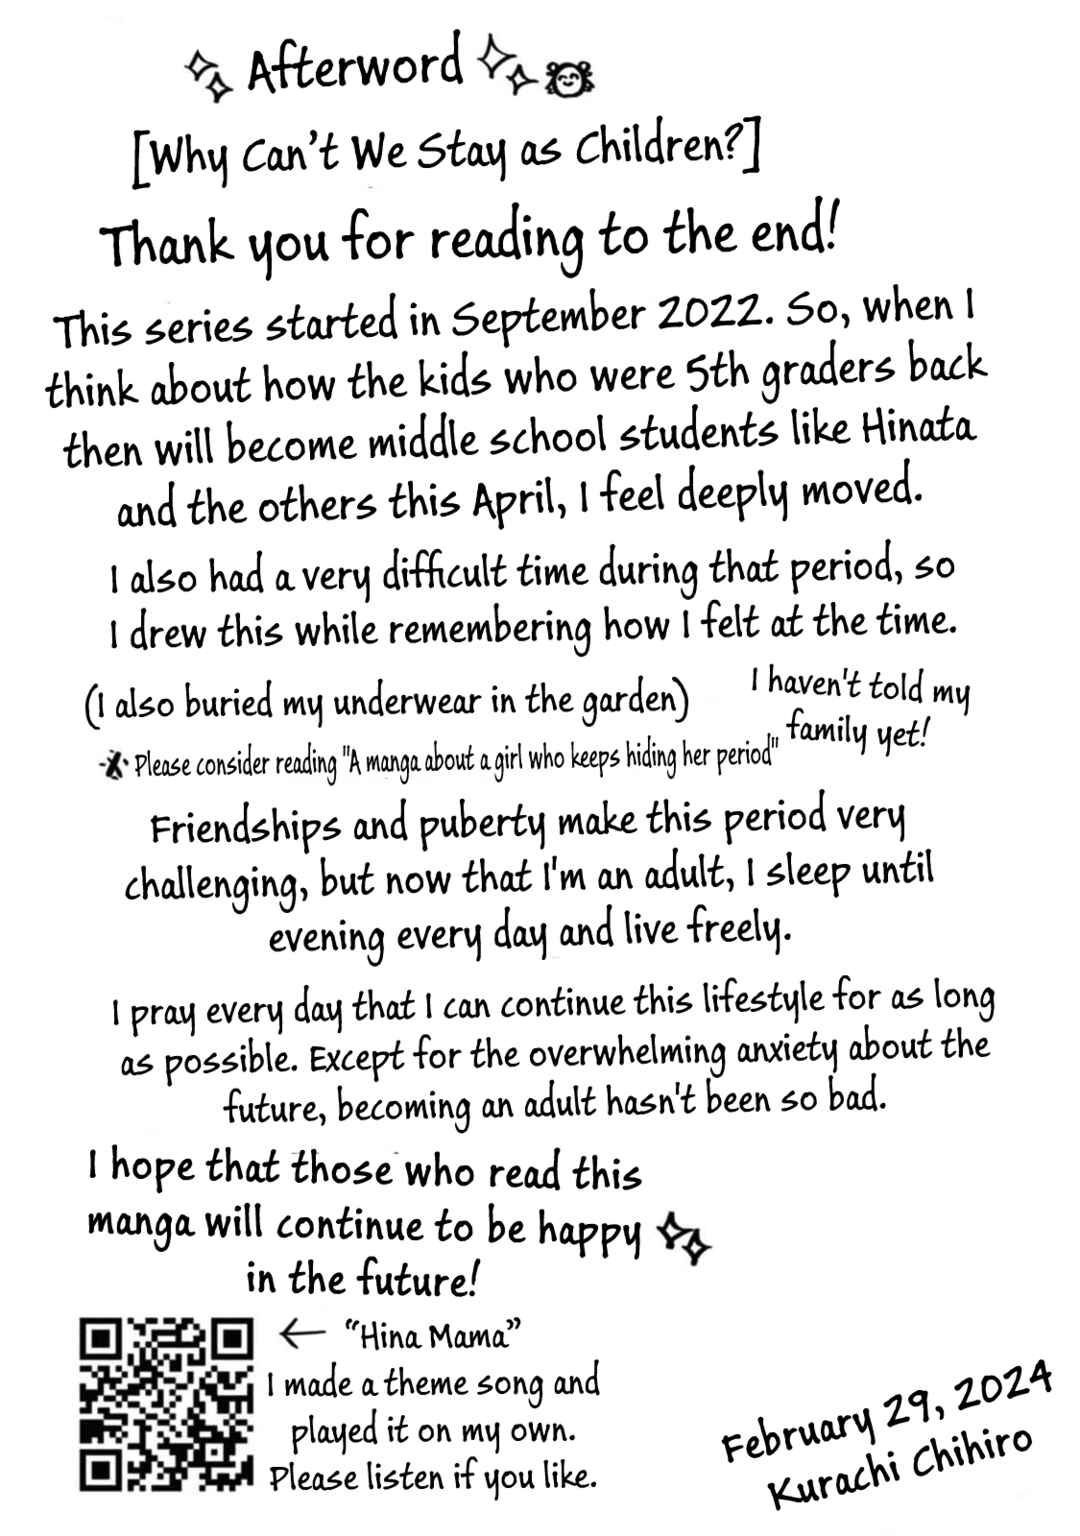 Afterword
[Why Can't We Stay as Children?]
Thank you for reading to the end!
This series started in September 2022. So, when I
think about how the kids who were 5th graders back
then will become middle school students like Hinata
and the others this April, I feel deeply moved.
I also had a very difficult time during that period, so
I drew this while remembering how I felt at the time.
(I also buried my underwear in the garden)
I haven't told my
family yet!
Please consider reading "A manga about a girl who keeps hiding her period"
Friendships and puberty make this period very
challenging, but now that I'm an adult, I sleep until
evening every day and live freely.
I pray every day that I can continue this lifestyle for as long
as possible. Except for the overwhelming anxiety about the
future, becoming an adult hasn't been so bad.
I hope that those who read this
manga will continue to be happy
in the future!
← “Hina Mama”
I made a theme song and
played it on my own.
Please listen if you like.
February 29, 2024
Kurachi Chihiro